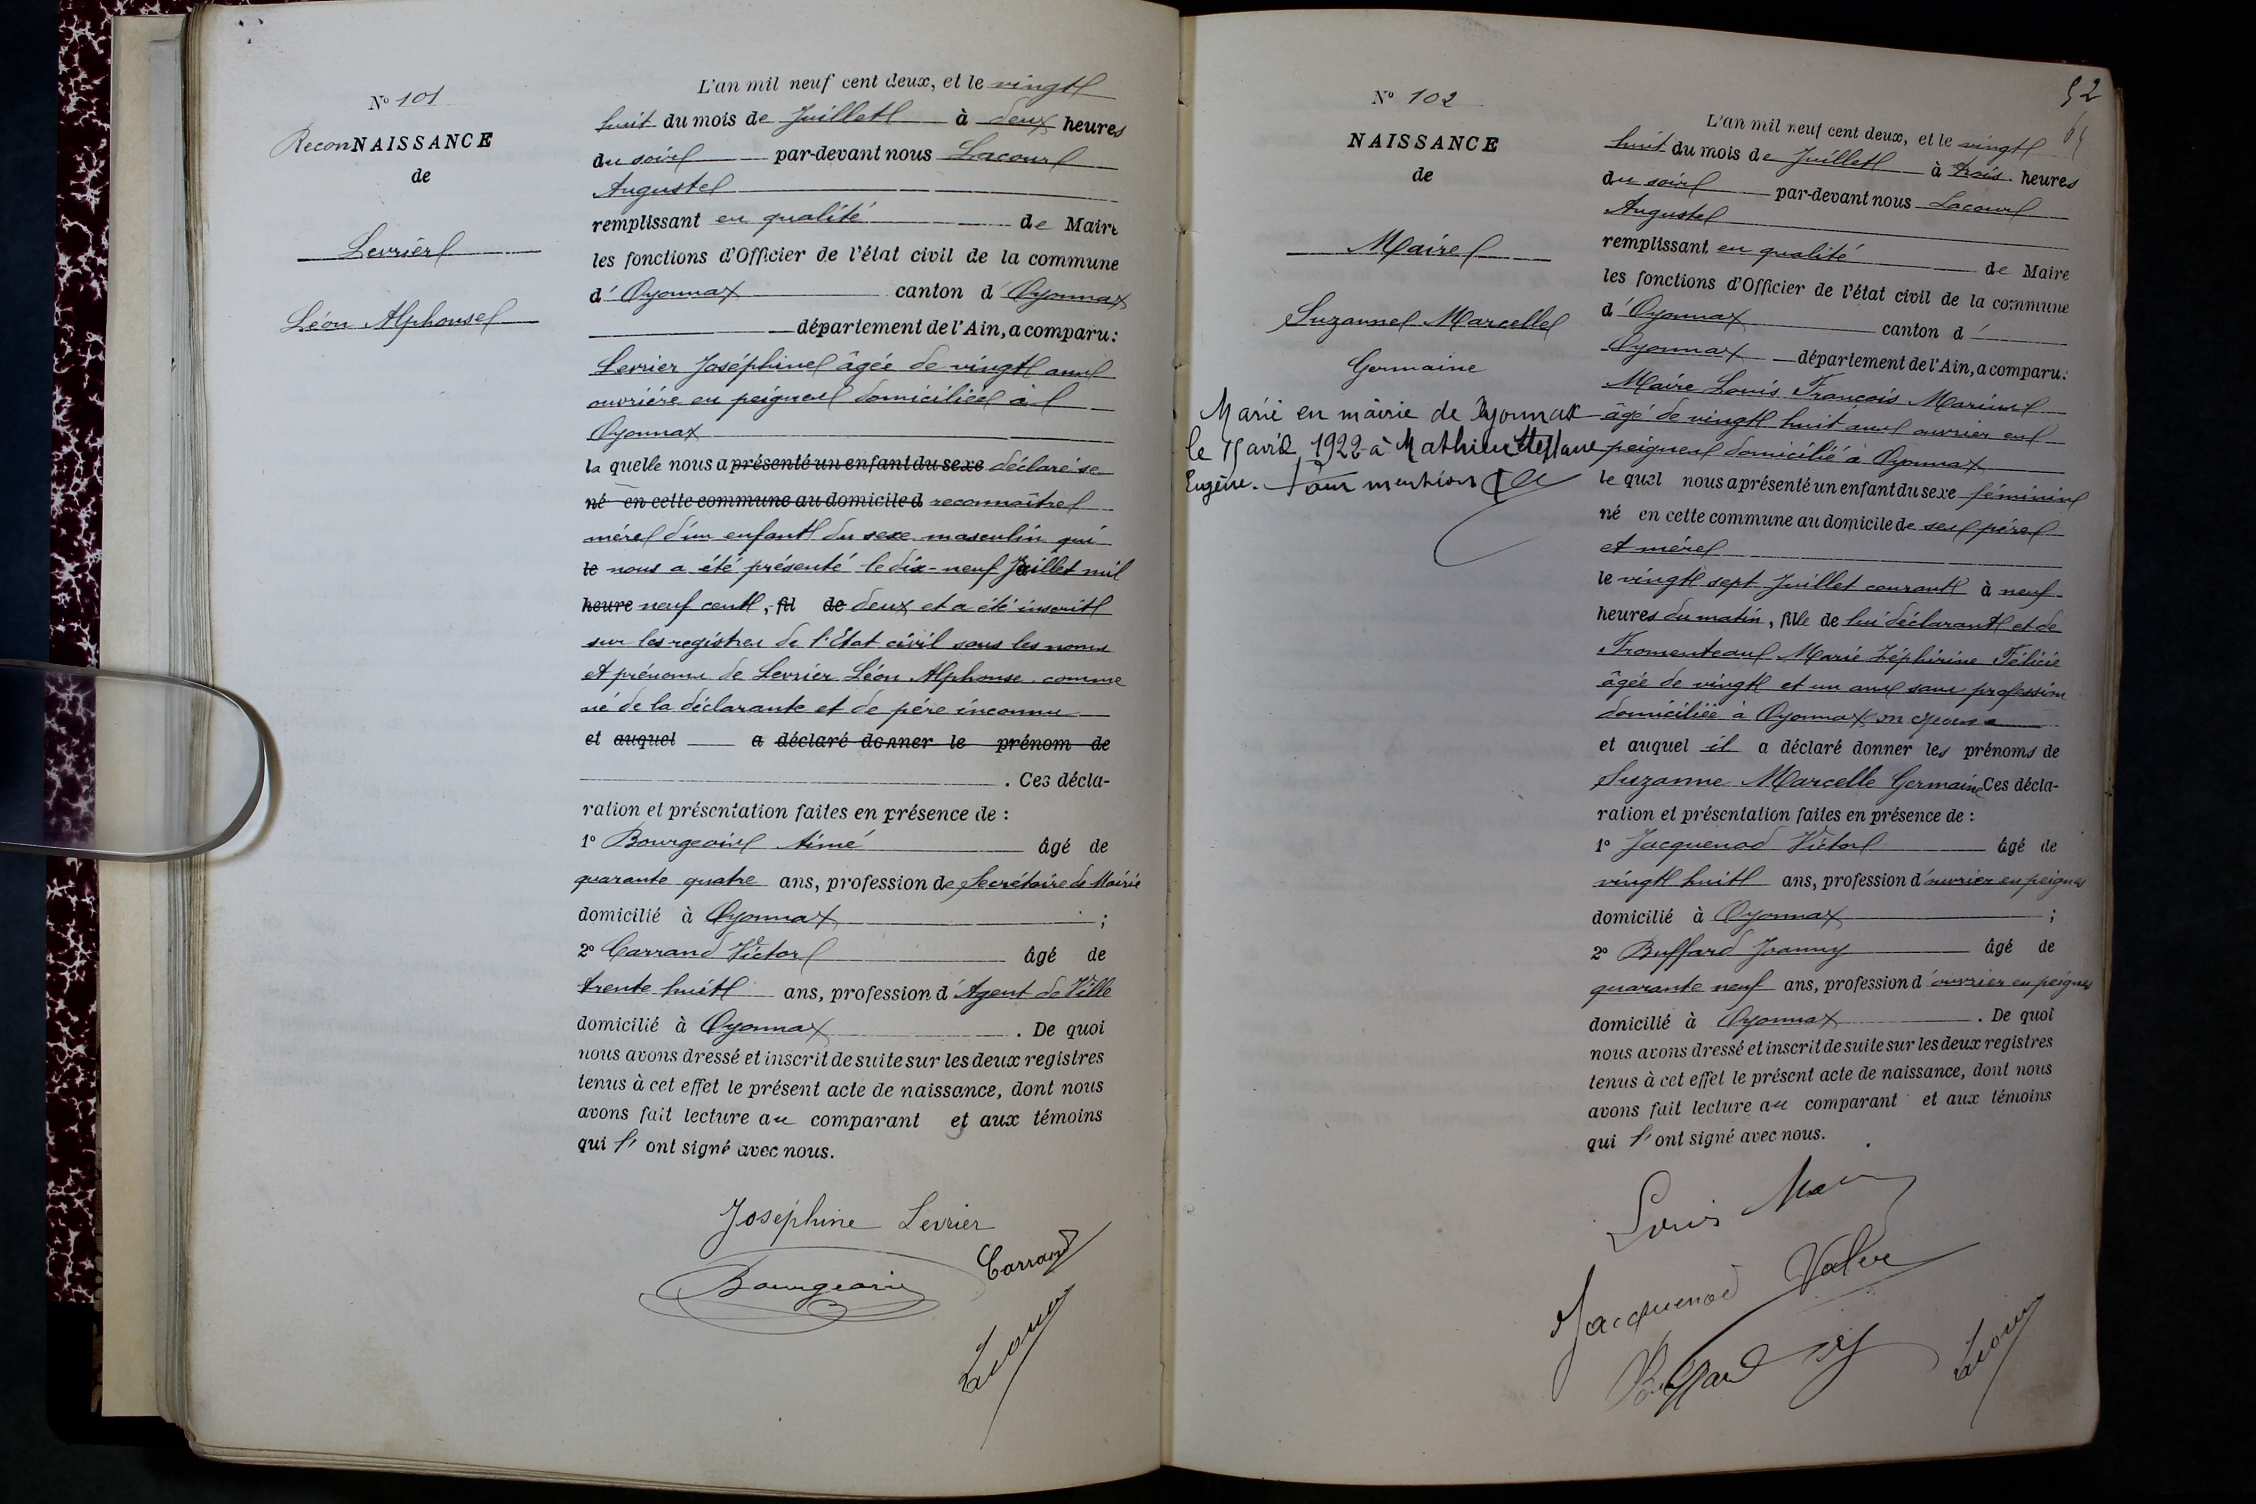 N° 101
ReconNAISSANCE
de
Levrier
Léon Alphonse
L'an mil neuf cent deux, et le vingt
huit du mois de Juillet à deux heures
du soir par-devant nous Lacour
Auguste
remplissant en qualité de Maire
les fonctions d'Officier de l'état civil de la commune
d'Oyonnax canton d'Oyonnax
département de l'Ain, a comparu:
Levrier Joséphine âgée de vingt ans
ouvrière en peignes domiciliée à
Oyonnax
la quelle nous a présenté un enfant du sexe déclaré se
né en cette commune au domicile d reconnaître
mère d'un enfant du sexe masculin qui
le nous a été présenté le dix-neuf Juillet mil
heure neuf cent, fil de deux et a été inscrit
sur les registres de l'Etat civil sous les noms
et prénoms de Levrier Léon Alphonse comme
né de la déclarante et de père inconnu
et auquel a déclaré donner le prénom de
. Ces décla-
ration et présentation faites en présence de :
1° Bourgeois Aimé âgé de
quarante quatre ans, profession de Secrétaire de Mairie
domicilié à Oyonnax ;
2° Carrand Victor âgé de
trente huit ans, profession d'Agent de Ville
domicilié à Oyonnax . De quoi
nous avons dressé et inscrit de suite sur les deux registres
tenus à cet effet le présent acte de naissance, dont nous
avons fait lecture au comparant et aux témoins
qui l'ont signé avec nous.
Joséphine Levrier
Carrand
Bourgeois
Lacour
52
N° 102
NAISSANCE
de
Maire
Suzanne Marcelle
Germaine
Marié en mairie de Oyonnax
le 15 avril 1922 à Mathieu
Eugène. Pour mention
L'an mil neuf cent deux, et le vingt
huit du mois de Juillet à trois heures
du soir par-devant nous Lacour
Auguste
remplissant en qualité de Maire
les fonctions d'Officier de l'état civil de la commune
d'Oyonnax canton d'
Oyonnax département de l'Ain, a comparu:
Maire Louis François Marius
âgé de vingt huit ans ouvrier en
peignes domicilié à Oyonnax
le quel nous a présenté un enfant du sexe féminin
né en cette commune au domicile de ses père
et mère
le vingt sept Juillet courant à neuf
heures du matin, fille de lui déclarant et de
Fromenteau Marie Zéphirine Félicie
âgée de vingt et un ans sans profession
domiciliée à Oyonnax son épouse
et auquel il a déclaré donner les prénoms de
Suzanne Marcelle Germaine Ces décla-
ration et présentation faites en présence de :
1° Jacquenod Victor âgé de
vingt huit ans, profession d'ouvrier en peignes
domicilié à Oyonnax ;
2° Buffard Joanny âgé de
quarante neuf ans, profession d'ouvrier en peignes
domicilié à Oyonnax . De quoi
nous avons dressé et inscrit de suite sur les deux registres
tenus à cet effet le présent acte de naissance, dont nous
avons fait lecture au comparant et aux témoins
qui l'ont signé avec nous.
Louis Maire
Jacquenod
Buffard
Lacour